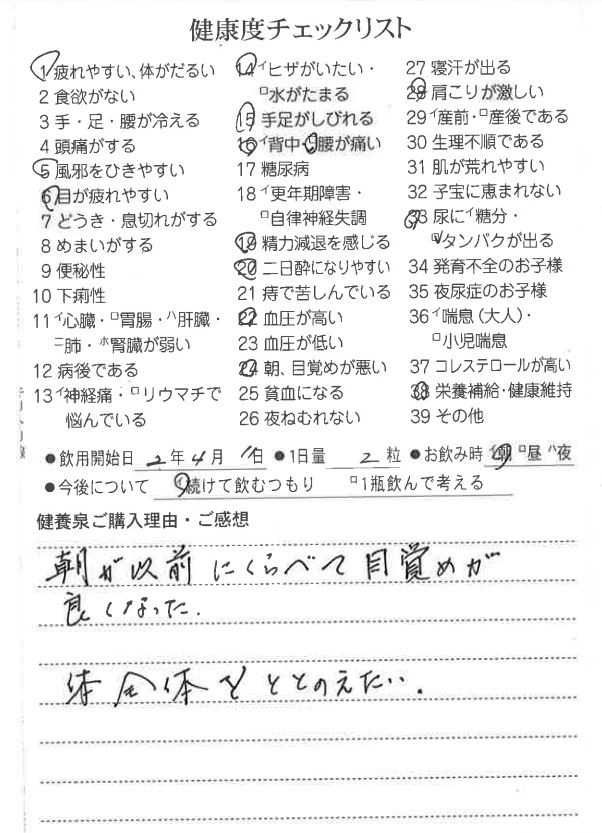 健康度チェックリスト
1 疲れやすい、体がだるい
2 食欲がない
3 手・足・腰が冷える
4 頭痛がする
5 風邪をひきやすい
6 目が疲れやすい
7 どうき・息切れがする
8 めまいがする
9 便秘性
10 下痢性
11 イ心臓・ロ胃腸・ハ肝臓・
ニ肺・ホ腎臓が弱い
12 病後である
13 イ神経痛・ロリウマチで
悩んでいる
14 イヒザがいたい・
ロ水がたまる
15 手足がしびれる
16 イ背中・ロ腰が痛い
17 糖尿病
18 イ更年期障害・
ロ自律神経失調
19 精力減退を感じる
20 二日酔になりやすい
21 痔で苦しんでいる
22 血圧が高い
23 血圧が低い
24 朝、目覚めが悪い
25 貧血になる
26 夜ねむれない
27 寝汗が出る
28 肩こりが激しい
29 イ産前・ロ産後である
30 生理不順である
31 肌が荒れやすい
32 子宝に恵まれない
33 尿にイ糖分・
ロタンパクが出る
34 発育不全のお子様
35 夜尿症のお子様
36 イ喘息(大人)・
ロ小児喘息
37 コレステロールが高い
38 栄養補給・健康維持
39 その他
●飲用開始日 2年4月11日 ●1日量 2粒 ●お飲み時 イ朝 ロ昼 ハ夜
●今後について イ続けて飲むつもり ロ1瓶飲んで考える
健養泉ご購入理由・ご感想
朝が以前にくらべて目覚めが
良くなった.
体全体をととのえたい.